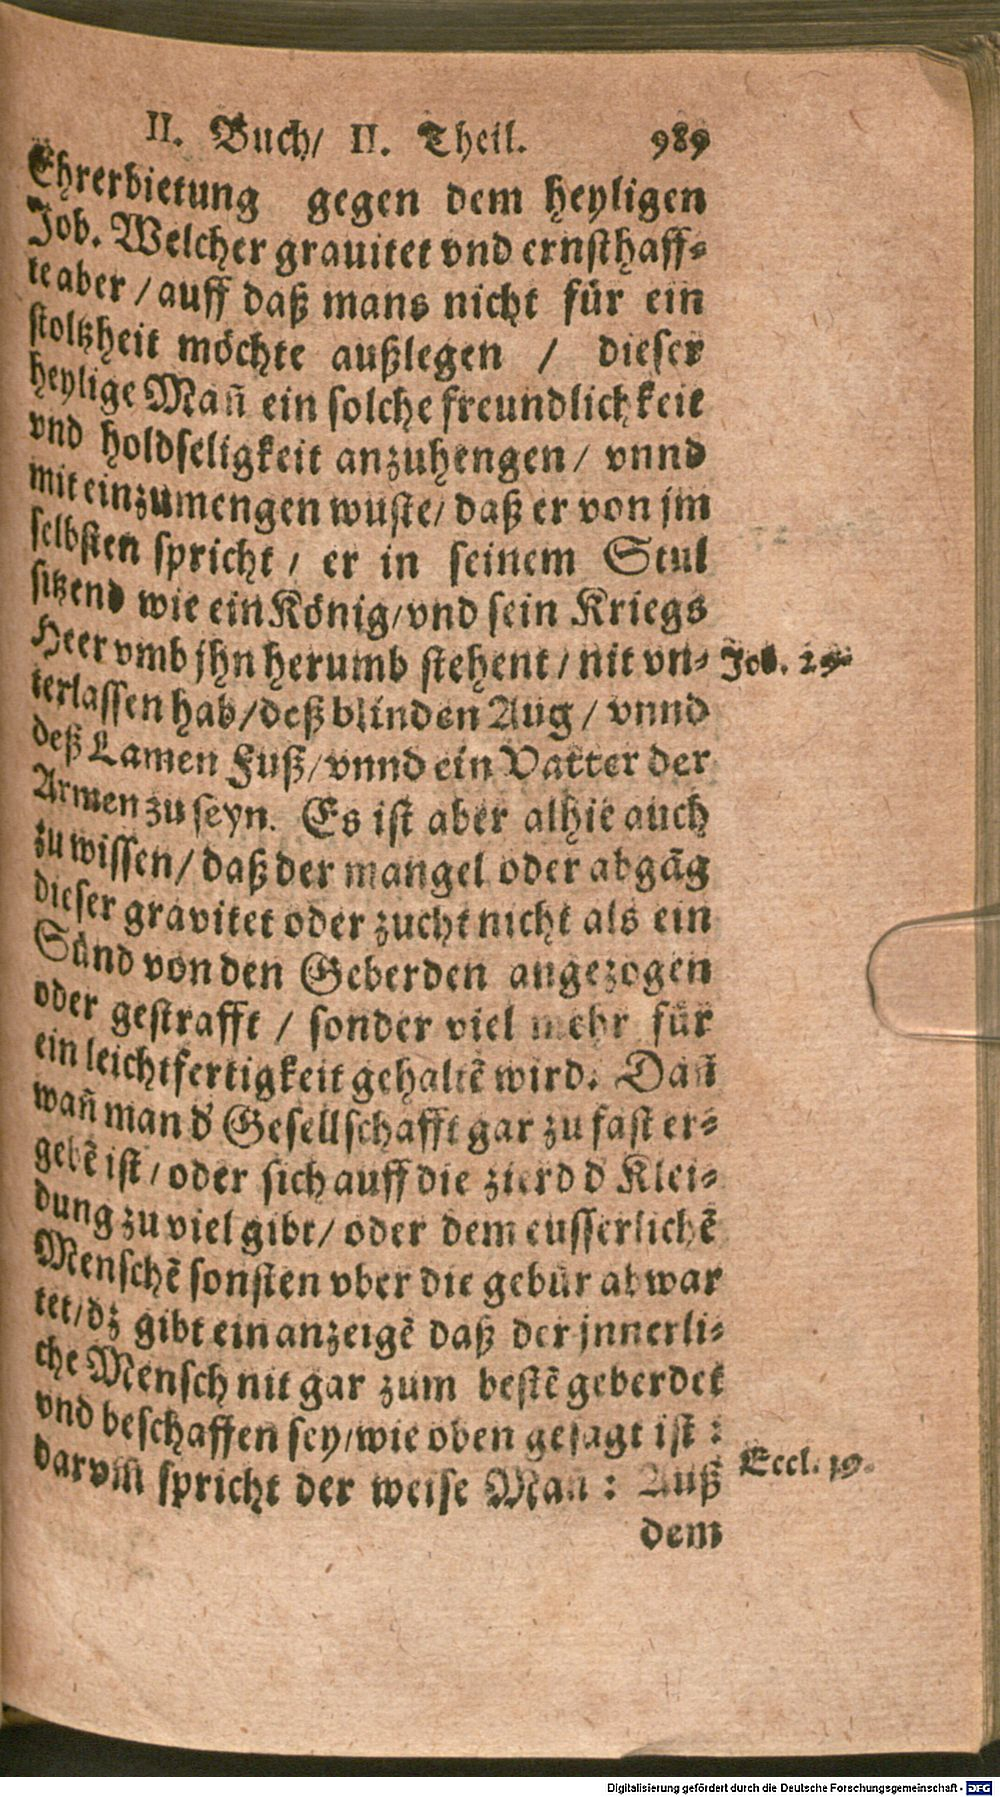 II. Buch/ II. Theil. 989
Ehrerbietung gegen dem heyligen
Job. Welcher grauitet vnd ernsthaff-
te aber / auff daß mans nicht für ein
stoltzheit möchte außlegen / dieser
heylige Mañ ein solche freundlichkeit
vnd holdseligkeit anzuhengen / vnnd
mit einzumengen wuste / daß er von jm
selbsten spricht / er in seinem Stul
sitzend wie ein König / vnd sein Kriegs
Heer vmb jhn herumb stehent / nit vn-
Job. 29.
terlassen hab / deß blinden Aug / vnnd
deß Lamen Fuß / vnnd ein Vatter der
Armen zu seyn. Es ist aber alhie auch
zu wissen / daß der mangel oder abgãg
dieser gravitet oder zucht nicht als ein
Sünd von den Geberden angezogen
oder gestrafft / sonder viel mehr für
ein leichtfertigkeit gehaltẽ wird. Dañ
wañ man d' Gesellschafft gar zu fast er-
gebẽ ist / oder sich auff die zierd d Klei-
dung zu viel gibt / oder dem eusserlichẽ
Menschẽ sonsten vber die gebür abwar
tet / dz gibt ein anzeigẽ daß der jnnerli-
che Mensch nit gar zum bestẽ geberdet
vnd beschaffen sey / wie oben gesagt ist :
darvm̃ spricht der weise Mañ : Auß
Eccl. 19.
dem
Digitalisierung gefördert durch die Deutsche Forschungsgemeinschaft - DFG